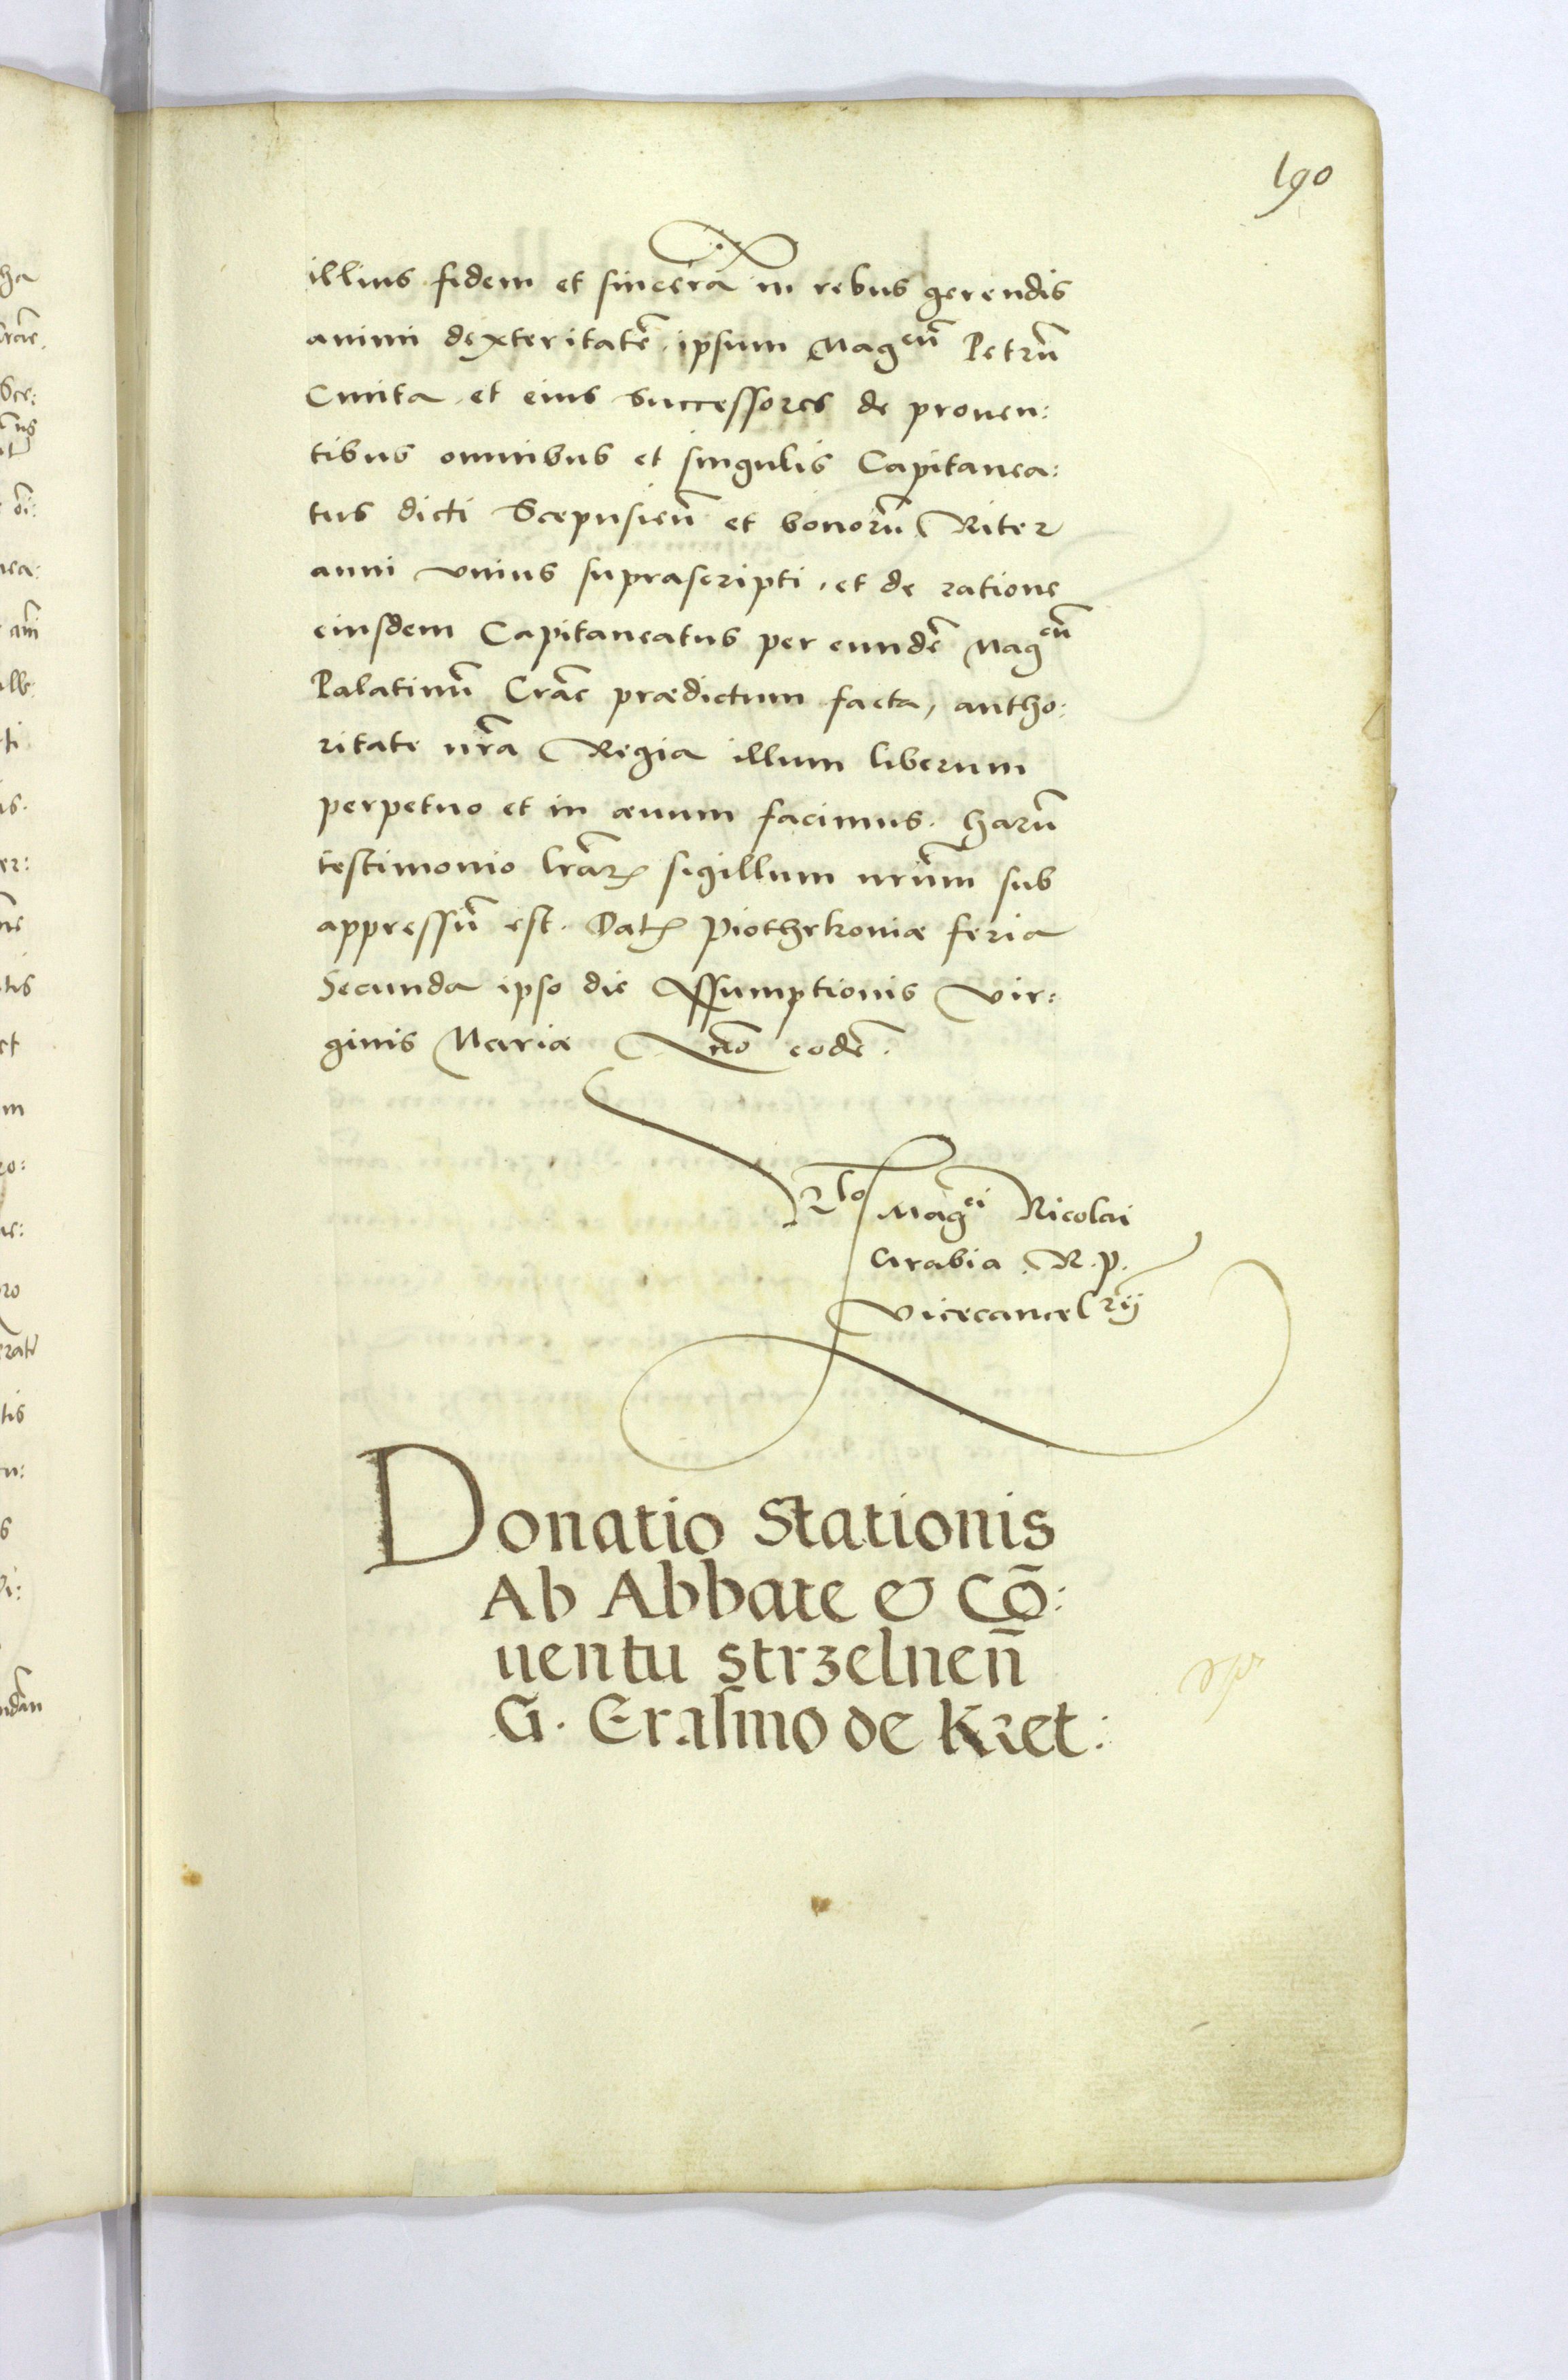 190
illius fidem et sincerā in rebus gerendis
animi dexteritatē ipsum Magcū Petrū
Cmita et eius successores de prouen:
tibus omnibus et singulis Capitanea:
tus dicti Scepusieñ et bonorū Riter
anni vnius suprascripti, et de ratione
eiusdem Capitaneatus per eundē Magcū
Palatinū Crac̄ prædictum facta, autho:
ritate nr̄a Regia illum liberum
perpetuo et in æuum facimus. Harū
testimonio lrāꝝ sigillum nrūm sub
appressū est. Datꝭ Piothrkouiæ feria
Secunda ipso die Assumptionis Vir:
ginis Mariæ Año eodē.
Rlo Magci Nicolai
Grabia R. P.
Vicecancelrij
Donatio Stationis
Ab Abbate & Cō:
uentu Strzelneñ
G. Erasmo de Kret: